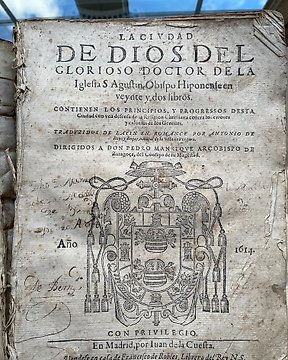 LA CIVDAD
DE DIOS DEL
GLORIOSO DOCTOR DE LA
Iglesia S. Agustin, Obispo Hiponense en
veynte y dos libros.
CONTIENEN LOS PRINCIPIOS, Y PROGRESSOS DESTA
Ciudad con vna defensa de la Religion Christiana contra los errores
y calumnias de los Gentiles.
TRADVZIDOS DE LATIN EN ROMANCE POR ANTONIO DE
DIRIGIDOS A DON PEDRO MANRIQVE ARCOBISPO DE
Zaragoça, del Consejo de su Magestad.
Año
1614
CON PRIVILEGIO
En Madrid, por Iuan de la Cuesta.
Vendese en casa de Francisco de Robles, Librero del Rey N. S.